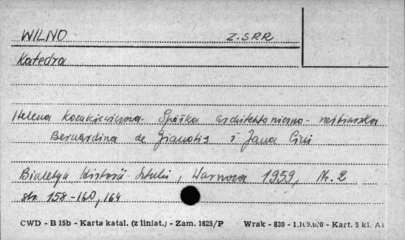 WILNO Z.SRR
Katedra
Helena Kozakiewiczowa. Spółka architektoniczno-rzeźbiarska
Bernardina de Gianotis i Jana Cini
Biuletyn Historii Sztuki, Warszawa 1959, Nr. 2
str. 158-160, 164
CWD - B 15b - Karta katal. (z liniat.) - Zam. 1625/P Wrak - 830 - Kart. 5 kl. A1